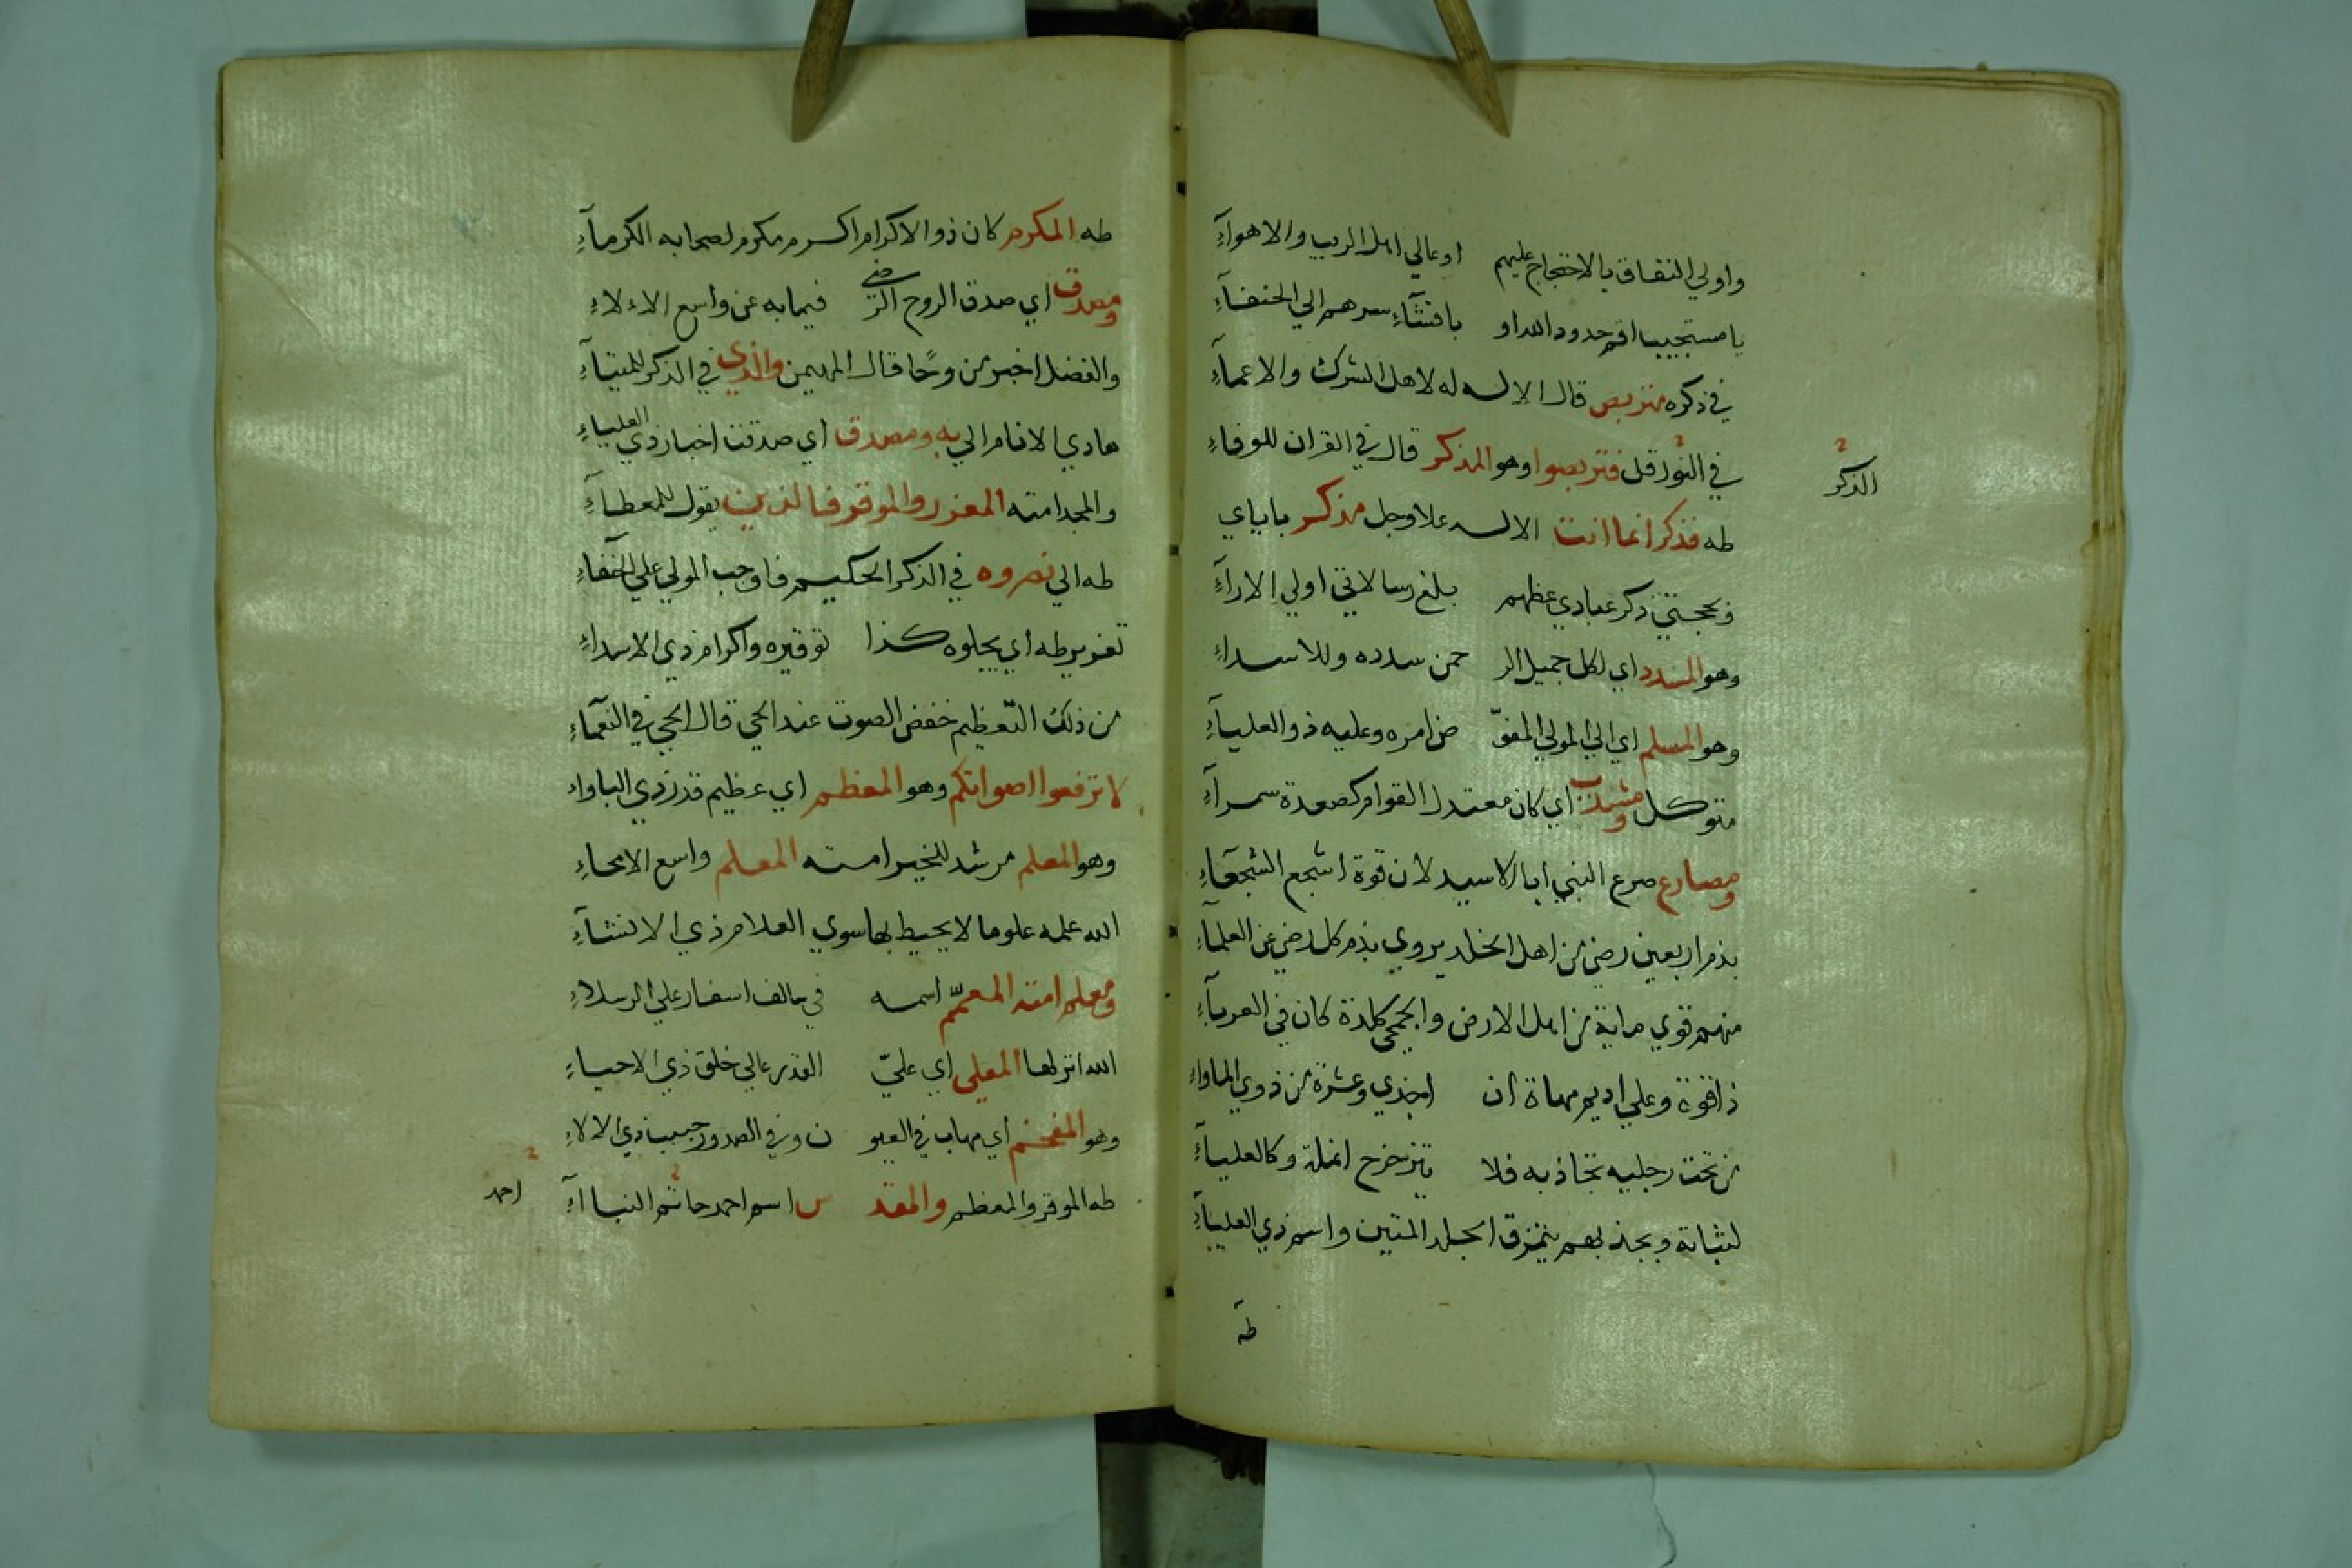 واولي النفاق بالاحتجاج عليهم اوعالي اهل الريب والاهوآءِ
يا مستجيبا اقم حدود الله او بافشآءِ سرهم الي الحنفآءِ
في ذكره متربص قال الاله له لاهل الشرك والاعمآءِ
في النور قل فتربصوا وهو المذكر قال في القران للوفاءِ
الذكر
طه فذكر انما انت الاله علا وجل مذكر باياي
وبحجتي ذكر عبادي عظهم بلغ رسالاتي اولي الارآءِ
وهو المسدد اي لكل جميل الر حمن سدده وللاسداءِ
وهو المسلم اي الي المولي المفوّ ض امره وعليه ذو العليآءِ
متوكل ومشذب اي كان معتدل القوام كصعدة سمرآءِ
ومصارع صرع النبي ابا الاسيد لان قوة اشجع الشجعآءِ
بذم اربعين رضي من اهل الخلد يروي بذم كل رضي عن العلمآءِ
منهم قوي ماية من اهل الارض والجمحي كلدة كان في العربآءِ
ذا قوة وعلي اديم مهاة ان اجذي وعشرة من ذوي الماواءِ
من تحت رجليه تجاذبه فلا يتزحزح انملة وكالعليآءِ
لثباتة وبجذبهم يتمزق الجلد المتين واسم ذي العليآءِ
طه
طه المكرم كان ذو الاكرام اكرم مكرم لصحابه الكرمآءِ
ومصدق اي صدق الروح الرضي فيما به عن واسع الاءلاءِ
والفضل اخبر من وحًا قال المهيمن والذي في الذكر للمتيآءِ
هادي الانام الي به ومصدق اي صدقت اخبار ذي العلياءِ
والمجد امته المعزر والموقر فالذين يقول للمعطآءِ
طه الي نصروه في الذكر الحكيم فاوجب المولي علي الحنفآءِ
تعزير طه اي يجلوه كذا توقيره واكرام ذي الاسداءِ
من ذلك التّعظيم خفض الصوت عند الحي قال الحي في النعمآءِ
لا ترفعوا اصواتكم وهو المعظم اي عظيم قدر ذي الباواءِ
وهو المعلم مرشد للخير امته المعلم واسع الامحاءِ
الله علمه علوما لا يحيط بها سوي العلام ذي الانشآءِ
ومعلم امته المعمّم اسمه في سالف اسفار علي الرسلاءِ
الله انزلها المعلي اي عليّ القدر عالي خلق ذي الاحياءِ
وهو المفخم اي مهاب في العيو ن وفي الصدور حبيب ذي الالاءِ
طه الموقر والمعظم والمقد س اسم احمد حاشم النبا اءِ
احمد